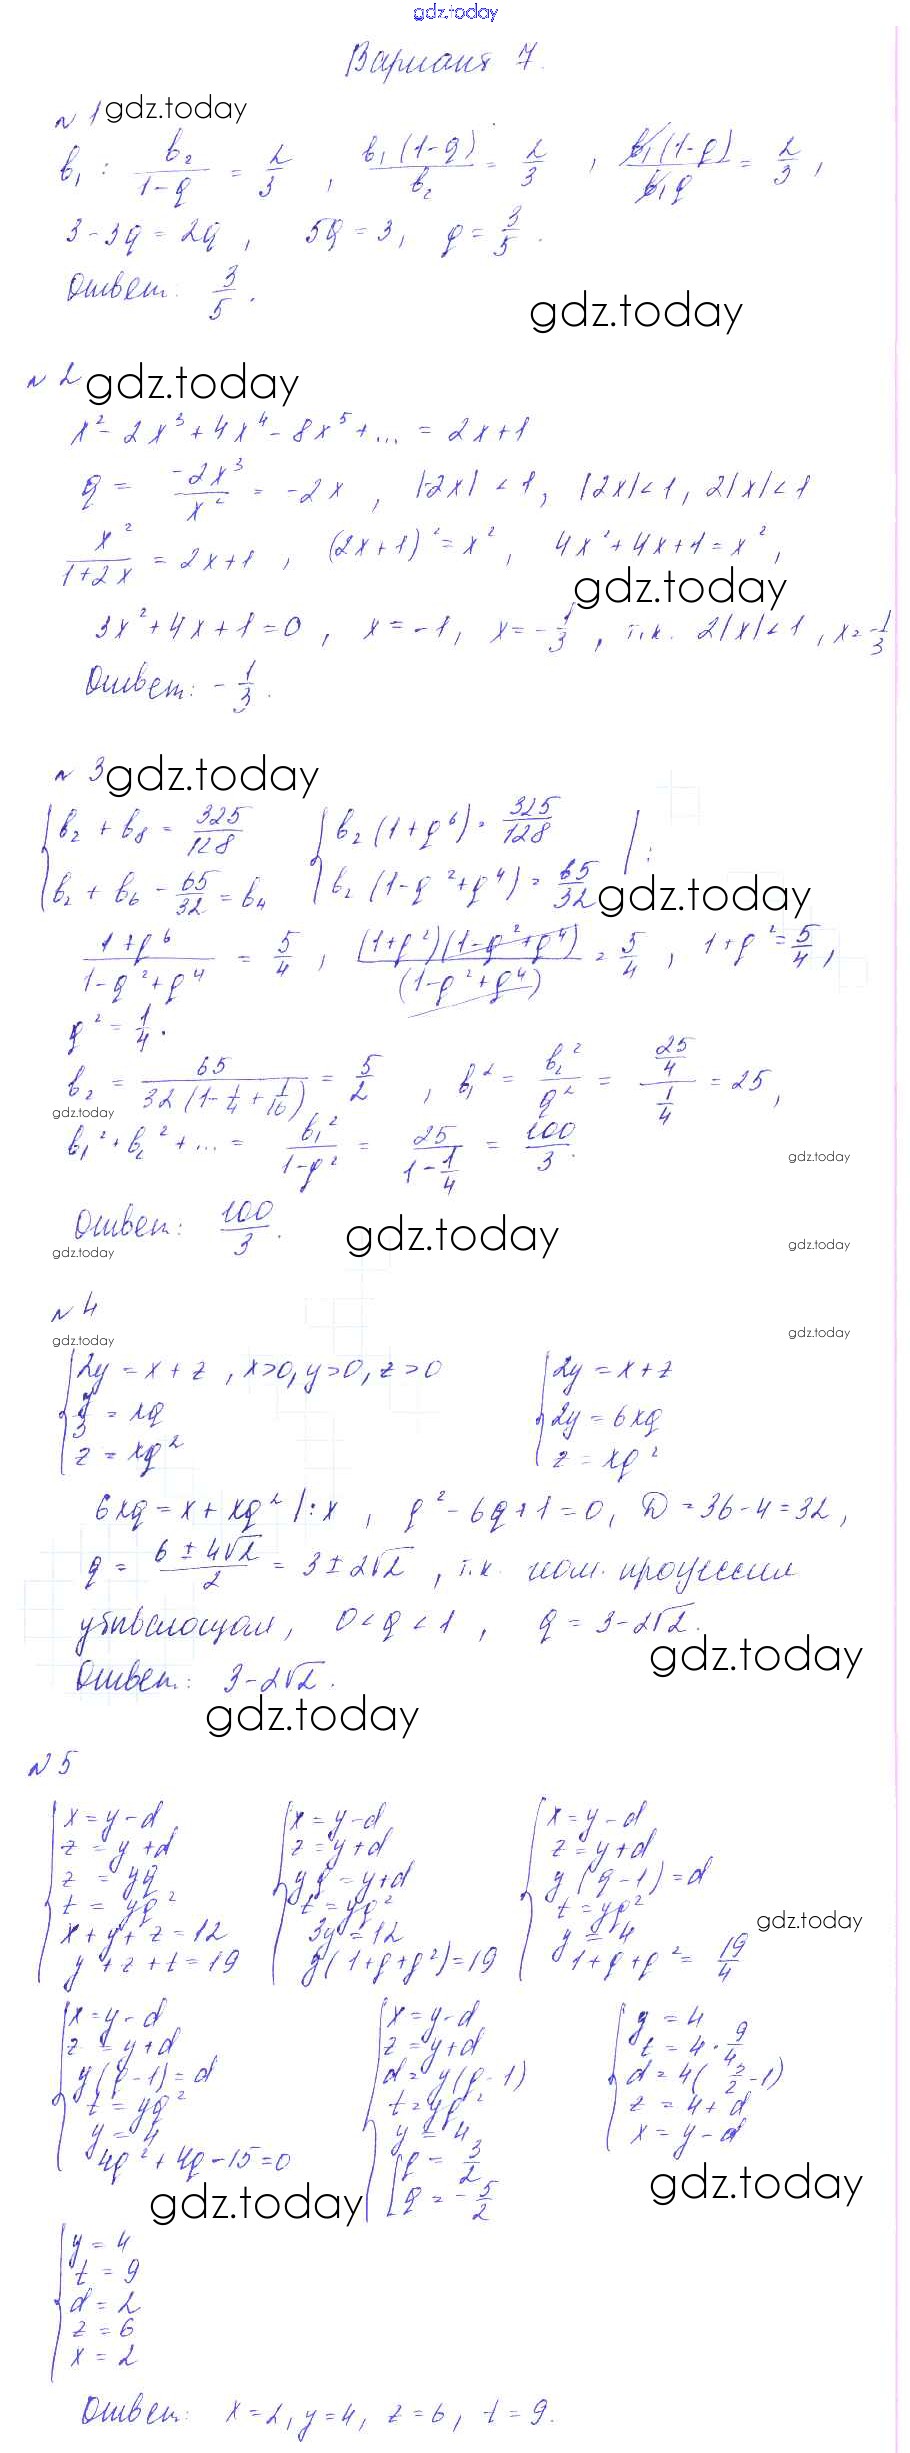 gdz.today
Вариант 7.
№ 1 gdz.today
b₁ : b₂/(1-q) = 2/3 , b₁(1-q)/b₂ = 2/3 , b₁(1-q)/(b₁q) = 2/3 ,
3-3q = 2q , 5q = 3 , q = 3/5 .
Ответ: 3/5 .
gdz.today
№ 2 gdz.today
x² - 2x³ + 4x⁴ - 8x⁵ + ... = 2x+1
q = -2x³/x² = -2x , |-2x| < 1 , |2x| < 1 , 2|x| < 1
x²/(1+2x) = 2x+1 , (2x+1)² = x² , 4x²+4x+1 = x² ,
gdz.today
3x²+4x+1=0 , x = -1 , x = -1/3 , т.к. 2|x|<1 , x = -1/3
Ответ: -1/3 .
№ 3 gdz.today
{ b₂ + b₈ = 325/128 { b₂(1+q⁶) = 325/128 | :
b₂ + b₆ - 65/32 = b₄ b₂(1-q²+q⁴) = 65/32 gdz.today
(1+q⁶)/(1-q²+q⁴) = 5/4 , (1+q²)(1-q²+q⁴)/(1-q²+q⁴) = 5/4 , 1+q² = 5/4 ,
q² = 1/4 .
b₂ = 65/(32(1-1/4+1/16)) = 5/2 , b₁² = b₂²/q² = (25/4)/(1/4) = 25 ,
gdz.today
b₁² + b₂² + ... = b₁²/(1-q²) = 25/(1-1/4) = 100/3 .
gdz.today
Ответ: 100/3 . gdz.today
gdz.today gdz.today
№ 4
gdz.today gdz.today
{ 2y = x+z , x>0, y>0, z>0 { 2y = x+z
y/3 = xq 2y = 6xq
z = xq² z = xq²
6xq = x + xq² |:x , q² - 6q + 1 = 0 , D = 36-4 = 32 ,
q = (6 ± 4√2)/2 = 3 ± 2√2 , т.к. геом. прогрессия
убывающая , 0 < q < 1 , q = 3-2√2 .
gdz.today
Ответ: 3-2√2 .
gdz.today
№ 5
{ x = y-d { x = y-d { x = y-d
z = y+d z = y+d z = y+d
z = yq yq = y+d y(q-1) = d
t = yq² t = yq² t = yq²
x+y+z = 12 3y = 12 y = 4 gdz.today
y+z+t = 19 y(1+q+q²) = 19 1+q+q² = 19/4
{ x = y-d { x = y-d { y = 4
z = y+d z = y+d t = 4 · 9/4
y(q-1) = d d = y(q-1) d = 4(3/2 - 1)
t = yq² t = yq² z = 4+d
y = 4 y = 4 x = y-d
4q²+4q-15=0 [ q = 3/2 gdz.today
gdz.today q = -5/2
{ y = 4
t = 9
d = 2
z = 6
x = 2
Ответ: x = 2, y = 4, z = 6, t = 9.